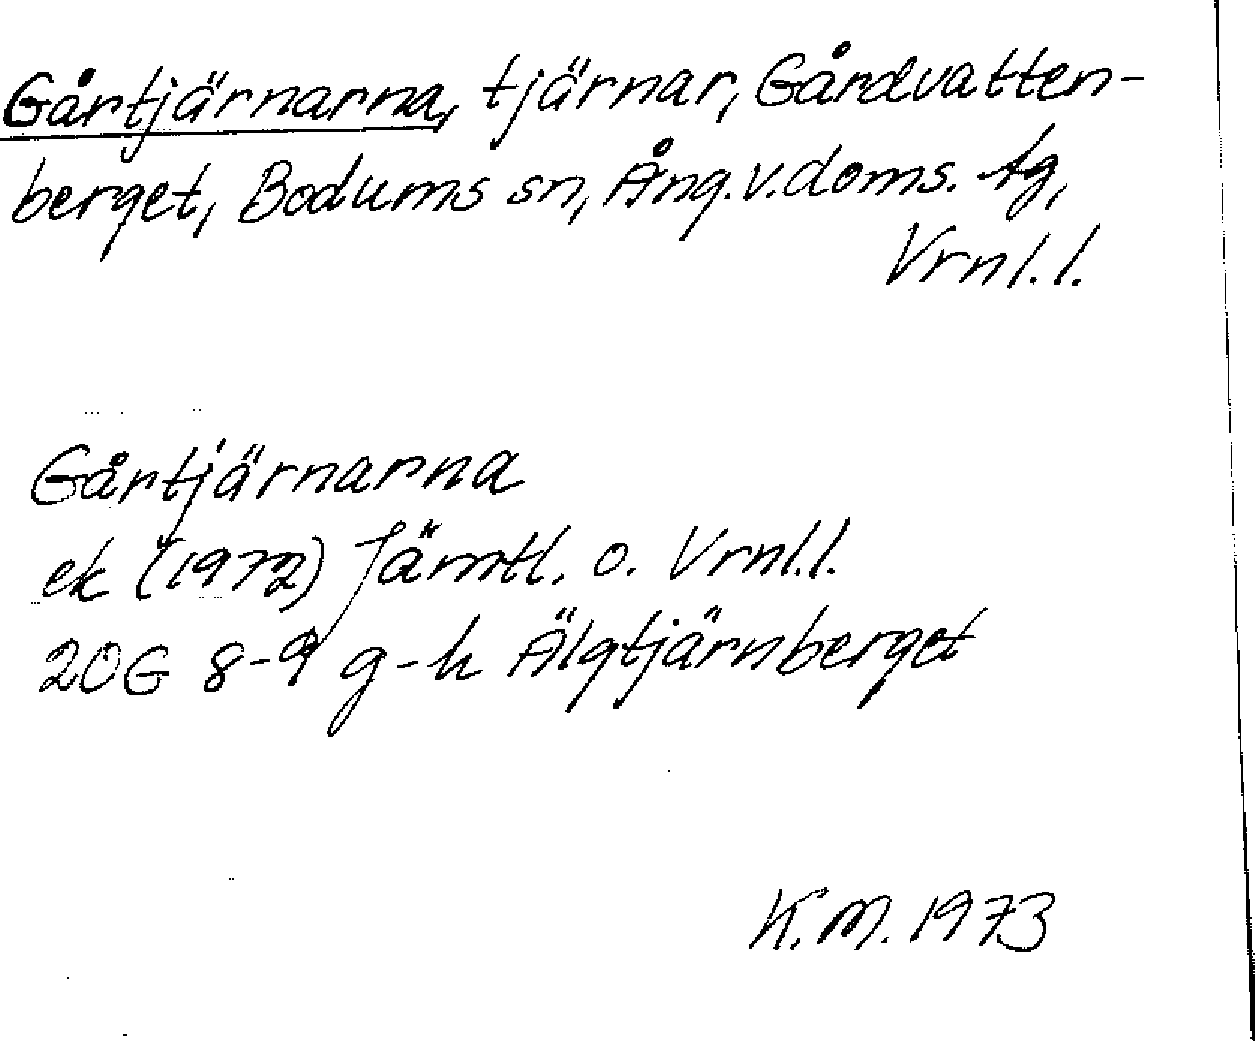 Gårtjärnarna, tjärnar, Gårdvatten-
berget, Bodums sn, Ång.v.doms. tg,
Vrnl.l.
Gårtjärnarna
ek (1972) Jämtl. o. Vrnl.l.
20G 8-9 g-h Älgtjärnberget
K.M. 1973